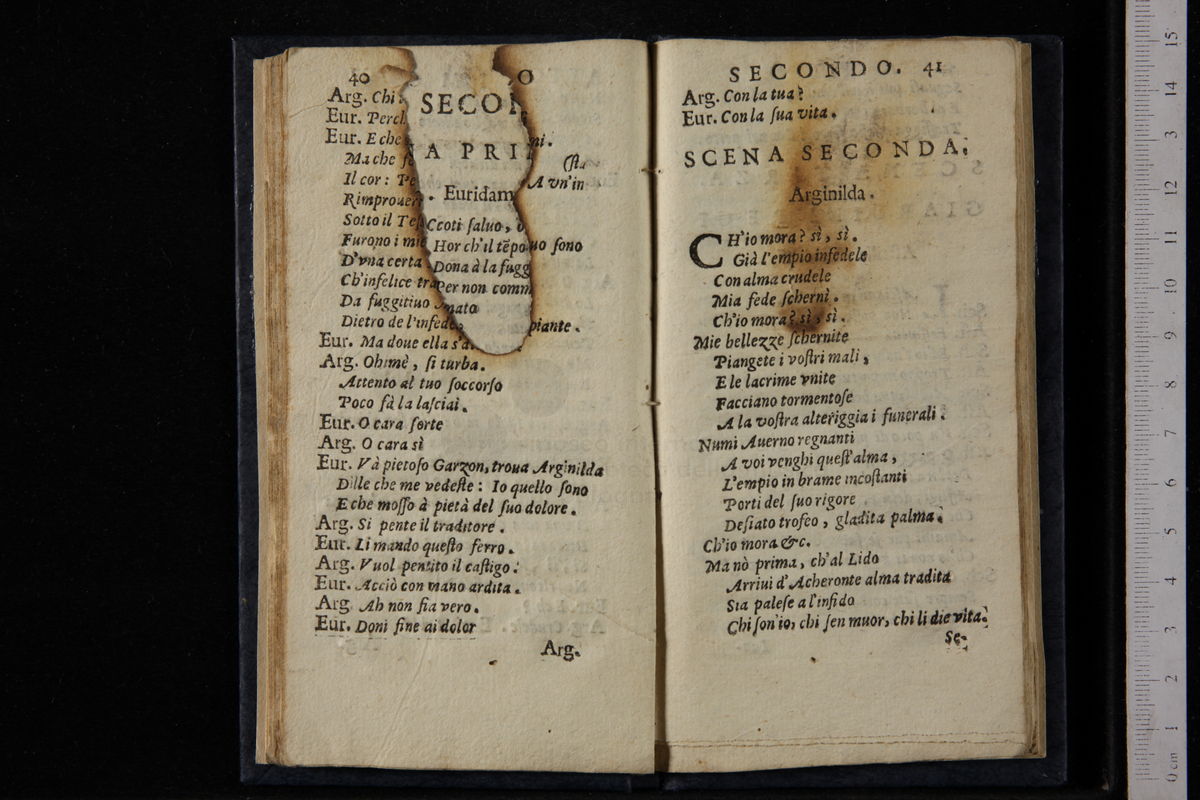 40 O
Arg. Chi
SECON
Eur. Perch
Eur. E che ni.
A PRI
Ma che (ſta
Il cor: Pe A vn'in
Rimprouer
. Euridam
Sotto il Teſ
Ccoti ſaluo, o
Furono i mie
Hor ch'il tẽpo uo ſono
D'vna certa
Dona à la fugg
Ch'infelice tra
Per non comm
Da fuggitiuo
mato
Dietro de l'infede piante.
Eur. Ma doue ella s'a
Arg. Ohimè, ſi turba.
Attento al tuo ſoccorſo
Poco fà la laſciai.
Eur. O cara ſorte
Arg. O cara sì
Eur. Và pietoſo Garzon, troua Arginilda
Dille che me vedeſte: Io quello ſono
E che moſſo à pietà del ſuo dolore.
Arg. Si pente il traditore.
Eur. Li mando queſto ferro.
Arg. Vuol pentito il caſtigo.
Eur. Acciò con mano ardita.
Arg Ah non ſia vero.
Eur. Doni fine ai dolor
Arg.
SECONDO. 41
Arg. Con la tua?
Eur. Con la ſua vita.
SCENA SECONDA.
Arginilda.
CH'io mora? sì, sì.
Già l'empio infedele
Con alma crudele
Mia fede ſchernì.
Ch'io mora? sì, sì.
Mie bellezze ſchernite
Piangete i voſtri mali,
E le lacrime vnite
Facciano tormentoſe
A la voſtra alteriggia i funerali.
Numi Auerno regnanti
A voi venghi queſt'alma,
L'empio in brame incoſtanti
Porti del ſuo rigore
Deſiato trofeo, gladita palma.
Ch'io mora &c.
Ma nò prima, ch'al Lido
Arriui d'Acheronte alma tradita
Sia paleſe a l'infido
Chi ſon'io, chi ſen muor, chi li die vita.
Se-